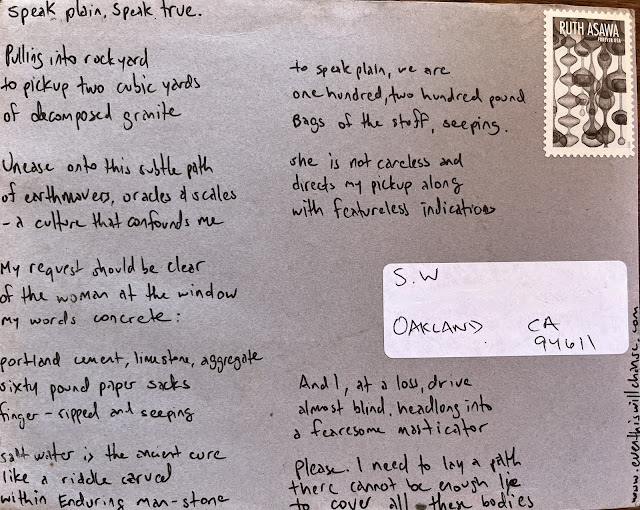 speak plain, speak true.
Pulling into rockyard
to pickup two cubic yards
of decomposed granite
Unease onto this subtle path
of earthmovers, oracles & scales
- a culture that confounds me
My request should be clear
of the woman at the window
my words concrete:
portland cement, limestone, aggregate
sixty pound paper sacks
finger-ripped and seeping
salt water is the ancient cure
like a riddle carved
within Enduring man-stone
to speak plain, we are
one hundred, two hundred pound
Bags of the stuff, seeping.
she is not careless and
directs my pickup along
with featureless indications
And I, at a loss, drive
almost blind, headlong into
a fearsome masticator
Please. I need to lay a path
there cannot be enough lye
to cover all these bodies
RUTH ASAWA
FOREVER USA
S.W
OAKLAND CA
94611
www.eventhiswillchange.com